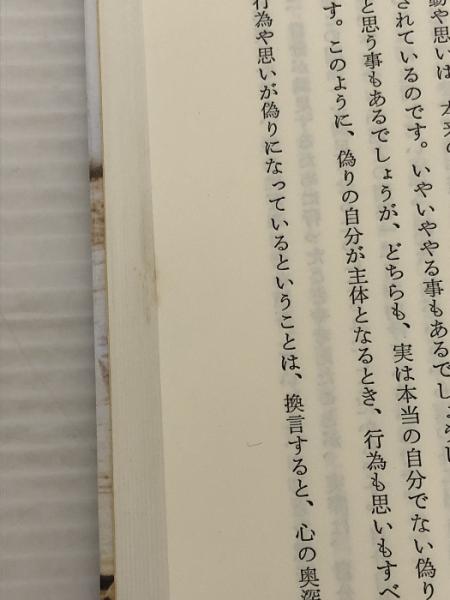 動や思いは、本来の
されているのです。いやいややる事もあるでしょうし
と思う事もあるでしょうが、どちらも、実は本当の自分でない偽り
す。このように、偽りの自分が主体となるとき、行為も思いもすべ
行為や思いが偽りになっているということは、換言すると、心の奥深